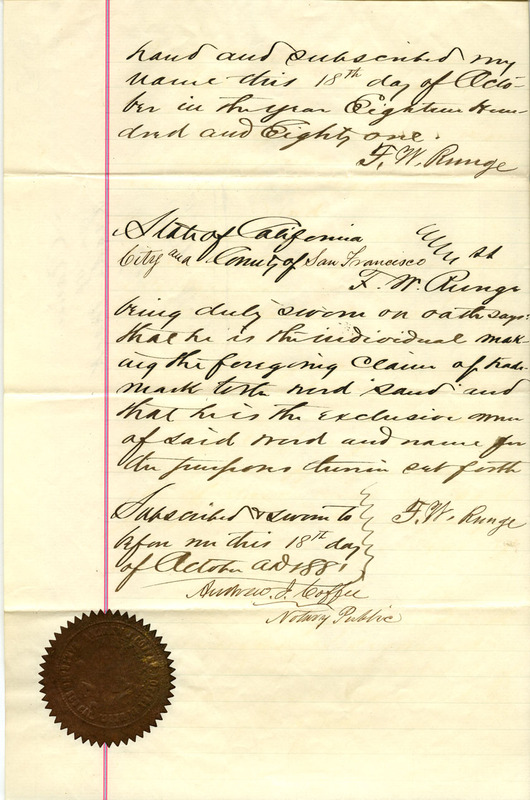 hand and subscribed my
name this 18th day of Octo-
ber in the year Eighteen Hun-
dred and Eighty one.
F. W. Runge
State of California
City and County of San Francisco ss
F. W. Runge
being duly sworn on oath says:
that he is the individual mak
ing the foregoing claim of trade-
mark to the word "Sand" and
that he is the exclusive owner
of said word and name for
the purposes therein set forth
Subscribed & sworn to
before me this 18th day
of October AD 1881
F. W. Runge
Andrew J. Coffee
Notary Public